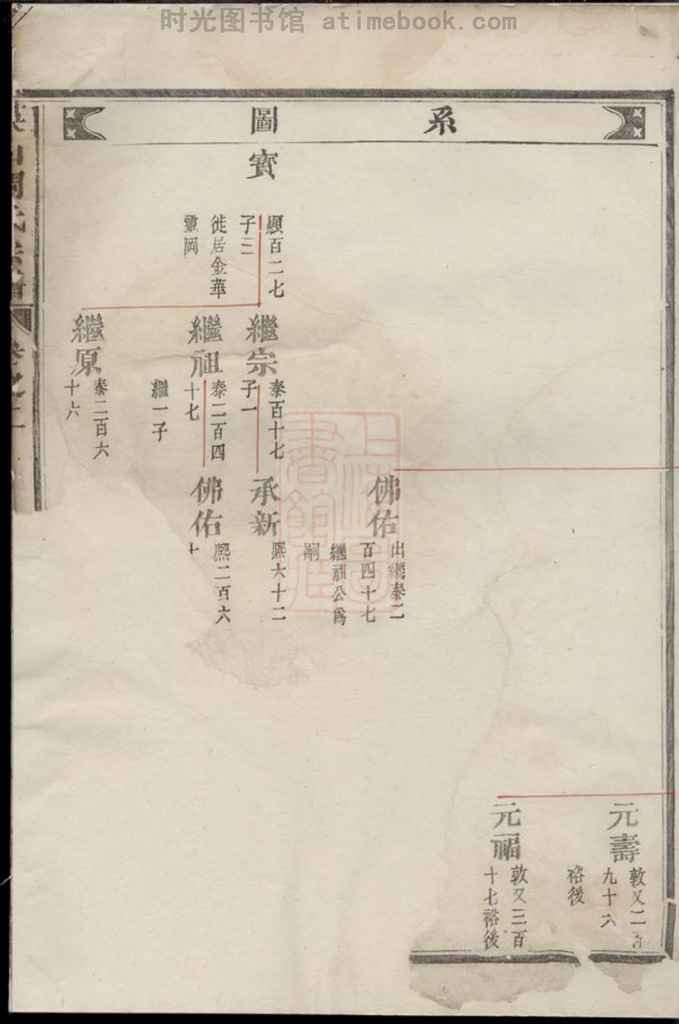 时光图书馆 atimebook.com
系圖
元壽
敦又二百
九十六
裕後
元福
敦又三百
十七裕後
佛佑
出繼泰二
百四十七
繼祖公爲
嗣
寳
顯百二七
子三
徙居金華
繼宗
泰百十七
子一
承新
熙六十二
繼祖
泰二百四
十七
繼一子
佛佑
熙二百六
十
繼原
泰二百六
十六